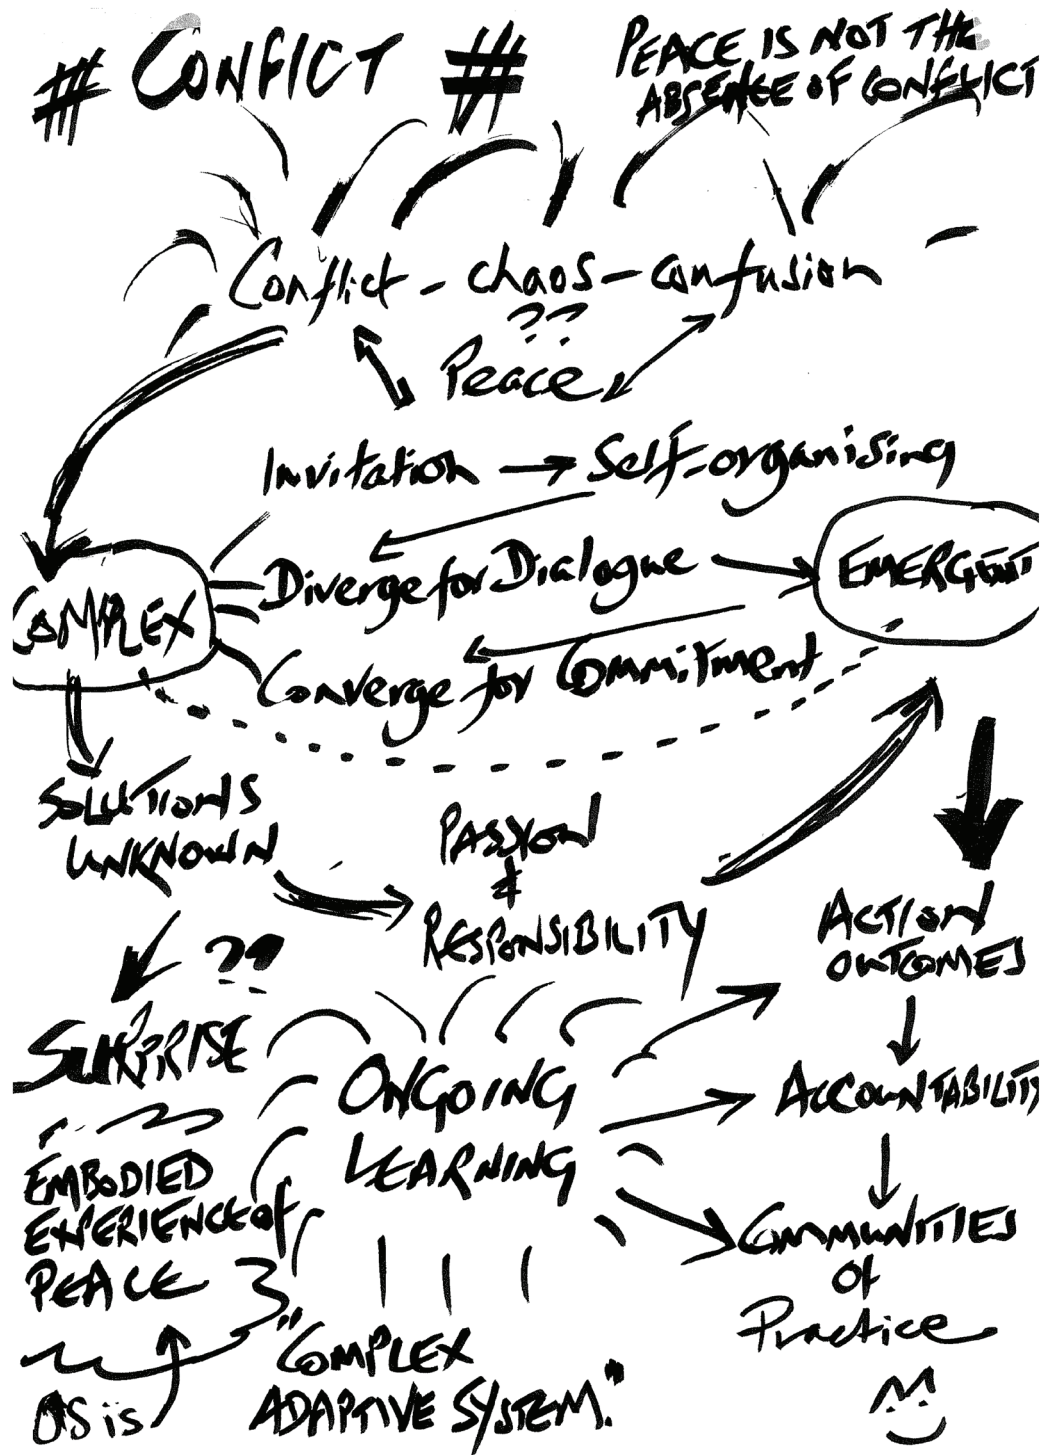 # CONFICT #
PEACE IS NOT THE
ABSENCE OF CONFLICT
Conflict - chaos - confusion
??
Peace
Invitation → Self-organising
Diverge for Dialogue
EMERGENT
COMPLEX
Converge for Commitment
SOLUTIONS
UNKNOWN
PASSION
&
RESPONSIBILITY
ACTION
OUTCOMES
??
SURPRISE
ONGOING
LEARNING
ACCOUNTABILITY
EMBODIED
EXPERIENCE OF
PEACE
COMMUNITIES
OF
Practice
"COMPLEX
ADAPTIVE SYSTEM."
OS is